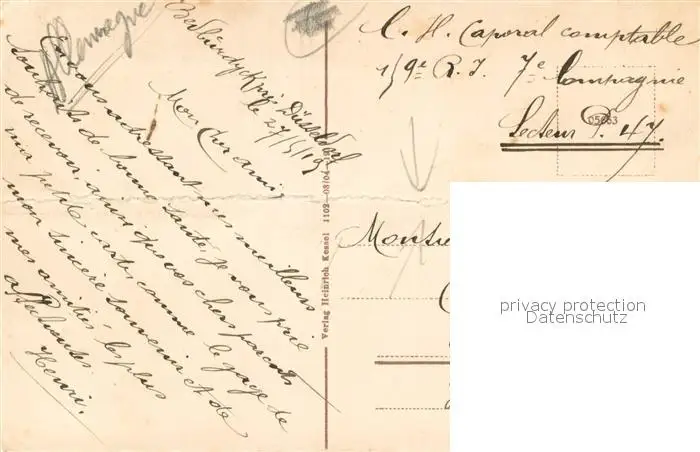 Allemagne
près Düsseldorf
le 27/5/19
Mon Cher ami,
En vous adressant mes meilleurs
souhaits de bonne santé, je vous prie
de recevoir, ainsi que vos chers parents
ma petite carte, comme le gage de
mon sincère souvenir et de
mes amitiés les plus
affectueuses.
Henri.
Verlag Heinrich Kessel 1102-08/04
C. H. Caporal comptable
1/9e R. I. 7e Compagnie
Secteur P. 47.
05063
privacy protection
Datenschutz